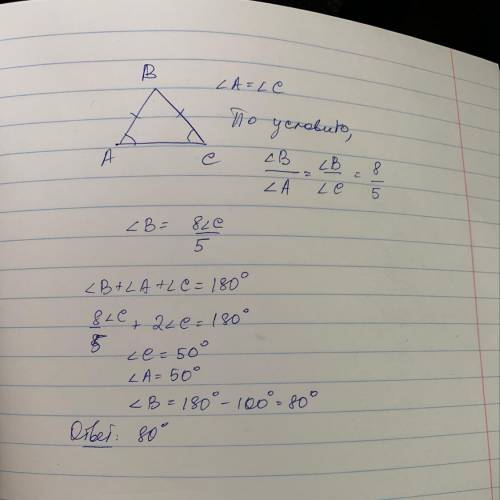 B
∠A = ∠C
По условию,
A
C
∠B/∠A = ∠B/∠C = 8/5
∠B = 8∠C/5
∠B + ∠A + ∠C = 180°
8∠C/5 + 2∠C = 180°
∠C = 50°
∠A = 50°
∠B = 180° - 100° = 80°
Ответ: 80°